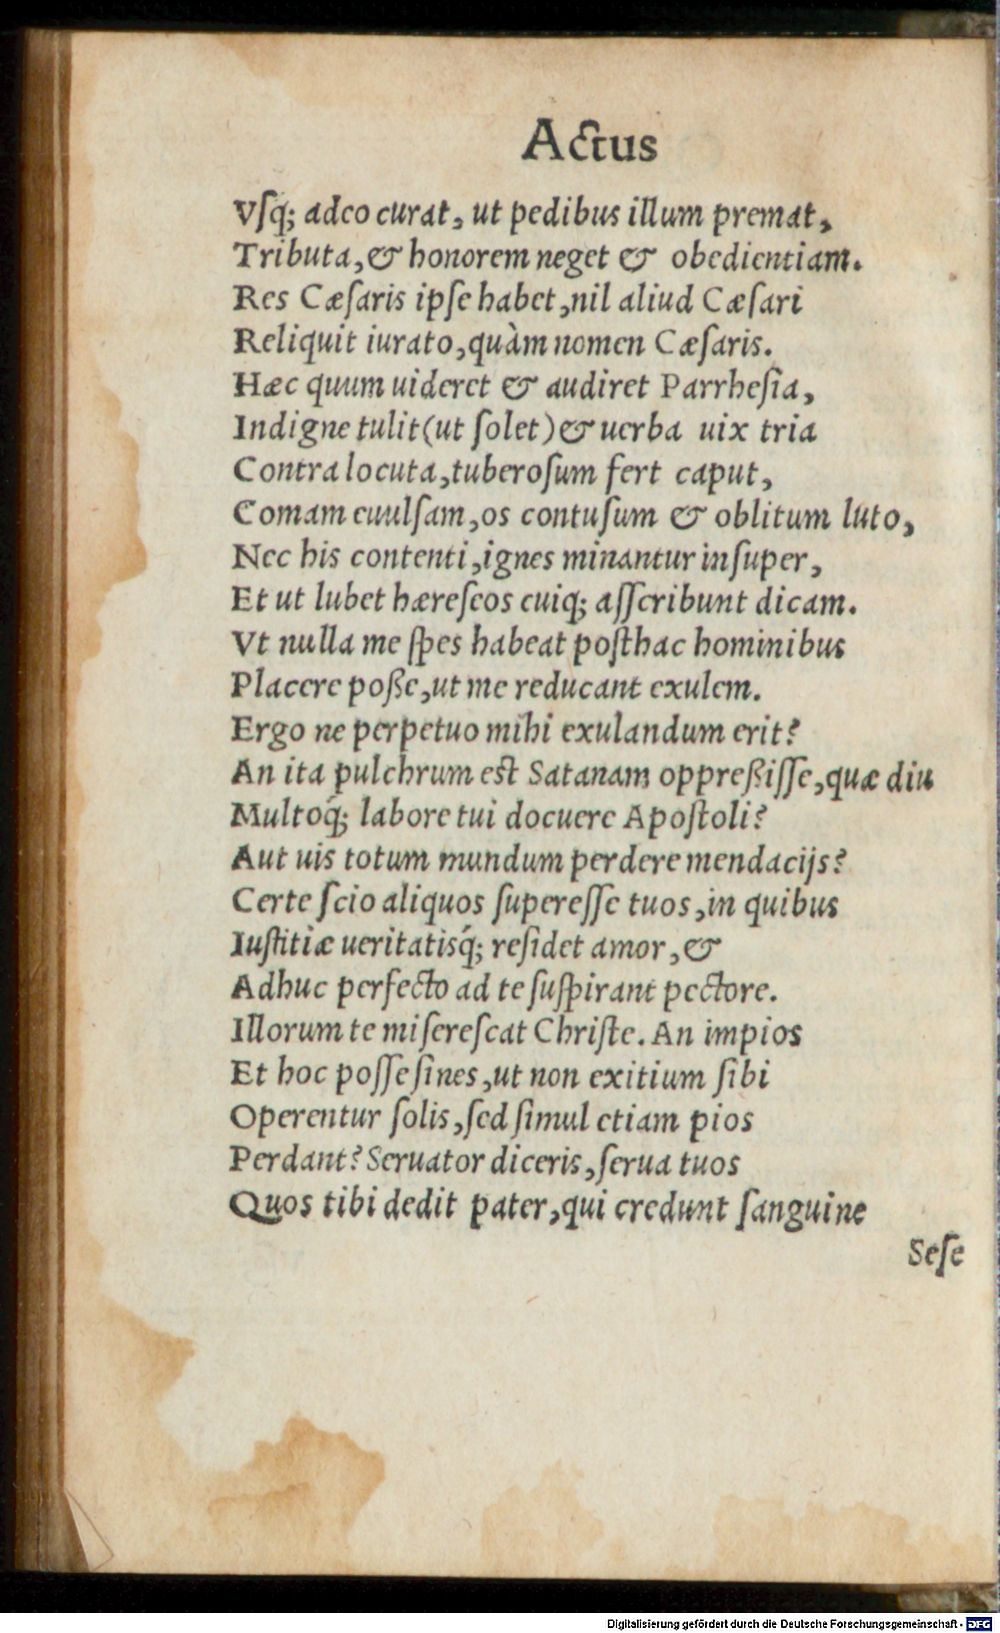 Actus
Vſq́; adeo curat, ut pedibus illum premat,
Tributa, & honorem neget & obedientiam.
Res Cæſaris ipſe habet, nil aliud Cæſari
Reliquit iurato, quàm nomen Cæſaris.
Hæc quum uideret & audiret Parrheſia,
Indigne tulit (ut ſolet) & uerba uix tria
Contra locuta, tuberoſum fert caput,
Comam euulſam, os contuſum & oblitum luto,
Nec his contenti, ignes minantur inſuper,
Et ut lubet hæreſeos cuiq; aſſcribunt dicam.
Vt nulla me ſpes habeat poſthac hominibus
Placere poße, ut me reducant exulem.
Ergo ne perpetuo mihi exulandum erit?
An ita pulchrum est Satanam oppreßiſſe, quæ diu
Multoq́; labore tui docuere Apoſtoli?
Aut uis totum mundum perdere mendacijs?
Certe ſcio aliquos ſupereſſe tuos, in quibus
Iuſtitiæ ueritatisq́; reſidet amor, &
Adhuc perfecto ad te ſuſpirant pectore.
Illorum te miſereſcat Chriſte. An impios
Et hoc poſſe ſines, ut non exitium ſibi
Operentur ſolis, ſed ſimul etiam pios
Perdant? Seruator diceris, ſerua tuos
Quos tibi dedit pater, qui credunt ſanguine
Seſe
Digitalisierung gefördert durch die Deutsche Forschungsgemeinschaft - DFG